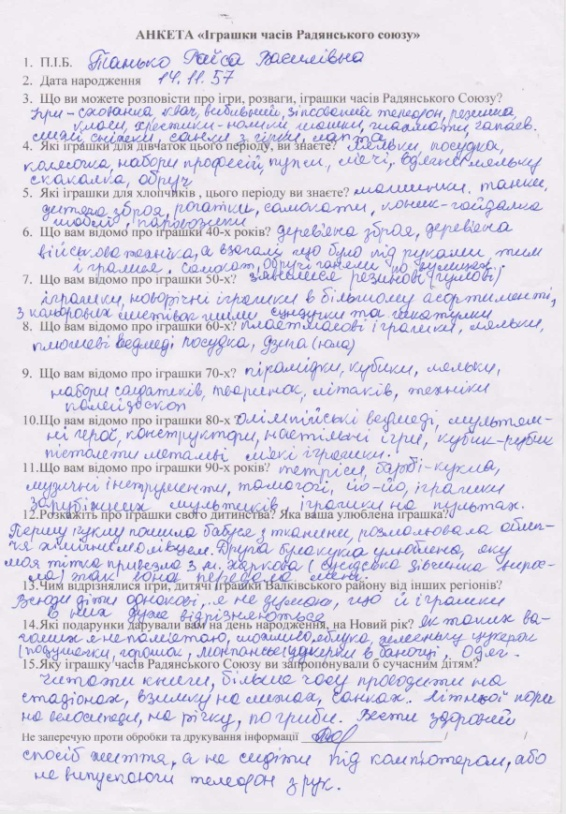 АНКЕТА «Іграшки часів Радянського союзу»
1. П.І.Б. Панько Раїса Василівна
2. Дата народження 14.11.57
3. Що ви можете розповісти про ігри, розваги, іграшки часів Радянського Союзу?
Ігри - схованка, квач, вибивний, зіпсований телефон, резинка,
класи, хрестики-нолики шашки, шахмати, чапаєв.
сніжки, санки з гірки, лапта
4. Які іграшки для дівчаток цього періоду, ви знаєте? Ляльки, посудка,
колясочка набори професій, пупси, мячі, ляльку
скакалка, обруч
5. Які іграшки для хлопчиків , цього періоду ви знаєте? машинки, танки,
дитяча зброя, рогатки, самокати, коник-гойдалка
шаблі, паровозики
6. Що вам відомо про іграшки 40-х років? дерев'яна зброя, дерев'яна
військова техніка, а взагалі що було під руками, тим
і грались. Самокат, обручі ганяли по вулицях.
7. Що вам відомо про іграшки 50-х? зявилися резинові (гумові)
іграшки, новорічні іграшки в більшому асортименті,
з листівок шили сундучки та шкатулки
8. Що вам відомо про іграшки 60-х? пластмасові іграшки, ляльки,
плюшеві ведмеді посудка, дзига (юла)
9. Що вам відомо про іграшки 70-х? пірамідки, кубики, ляльки,
набори солдатиків, тваринок, літаків, техніки
калейдоскоп
10.Що вам відомо про іграшки 80-х олімпійські ведмеді, мультяш-
ні герої, конструктори, настільні ігри, кубик-рубик
пістолети металеві мякі іграшки.
11.Що вам відомо про іграшки 90-х років? тетріси, барбі-кукла,
музичні інструменти, тамагочі, йо-йо, іграшки
зарубіжних мультиків іграшки на пультах.
12.Розкажіть про іграшки свого дитинства? Яка ваша улюблена іграшка?
Першу куклу пошила бабуся з тканини, розмалювала облич-
чя хімічним олівцем. Друга була кукла улюблена, яку
моя тітка привезла з м. Харкова (сусідська дівчинка вирос-
ла) так вона передала мені.
13.Чим відрізнялися ігри, дитячі іграшки Валківського району від інших регіонів?
Всюди діти однакові, я не думаю, що й іграшки
в них дуже відрізняються
14.Які подарунки дарували вам на день народження, на Новий рік? Як таких ва-
гомих я не пам'ятаю, яблука, жменьку цукерок
(подушечки, горошок, монпансьє цукерки в баночці, Одяг.
15.Яку іграшку часів Радянського Союзу ви запропонували б сучасним дітям?
Читати книги, більше часу проводити на
стадіонах, взимку на лижах, санках. Літньої пори
на велосипеди, на річку, по гриби. Вести здоровий
Не заперечую проти обробки та друкування інформації / /
спосіб життя, а не сидіти під компютером, або
не випускаючи телефон з рук.